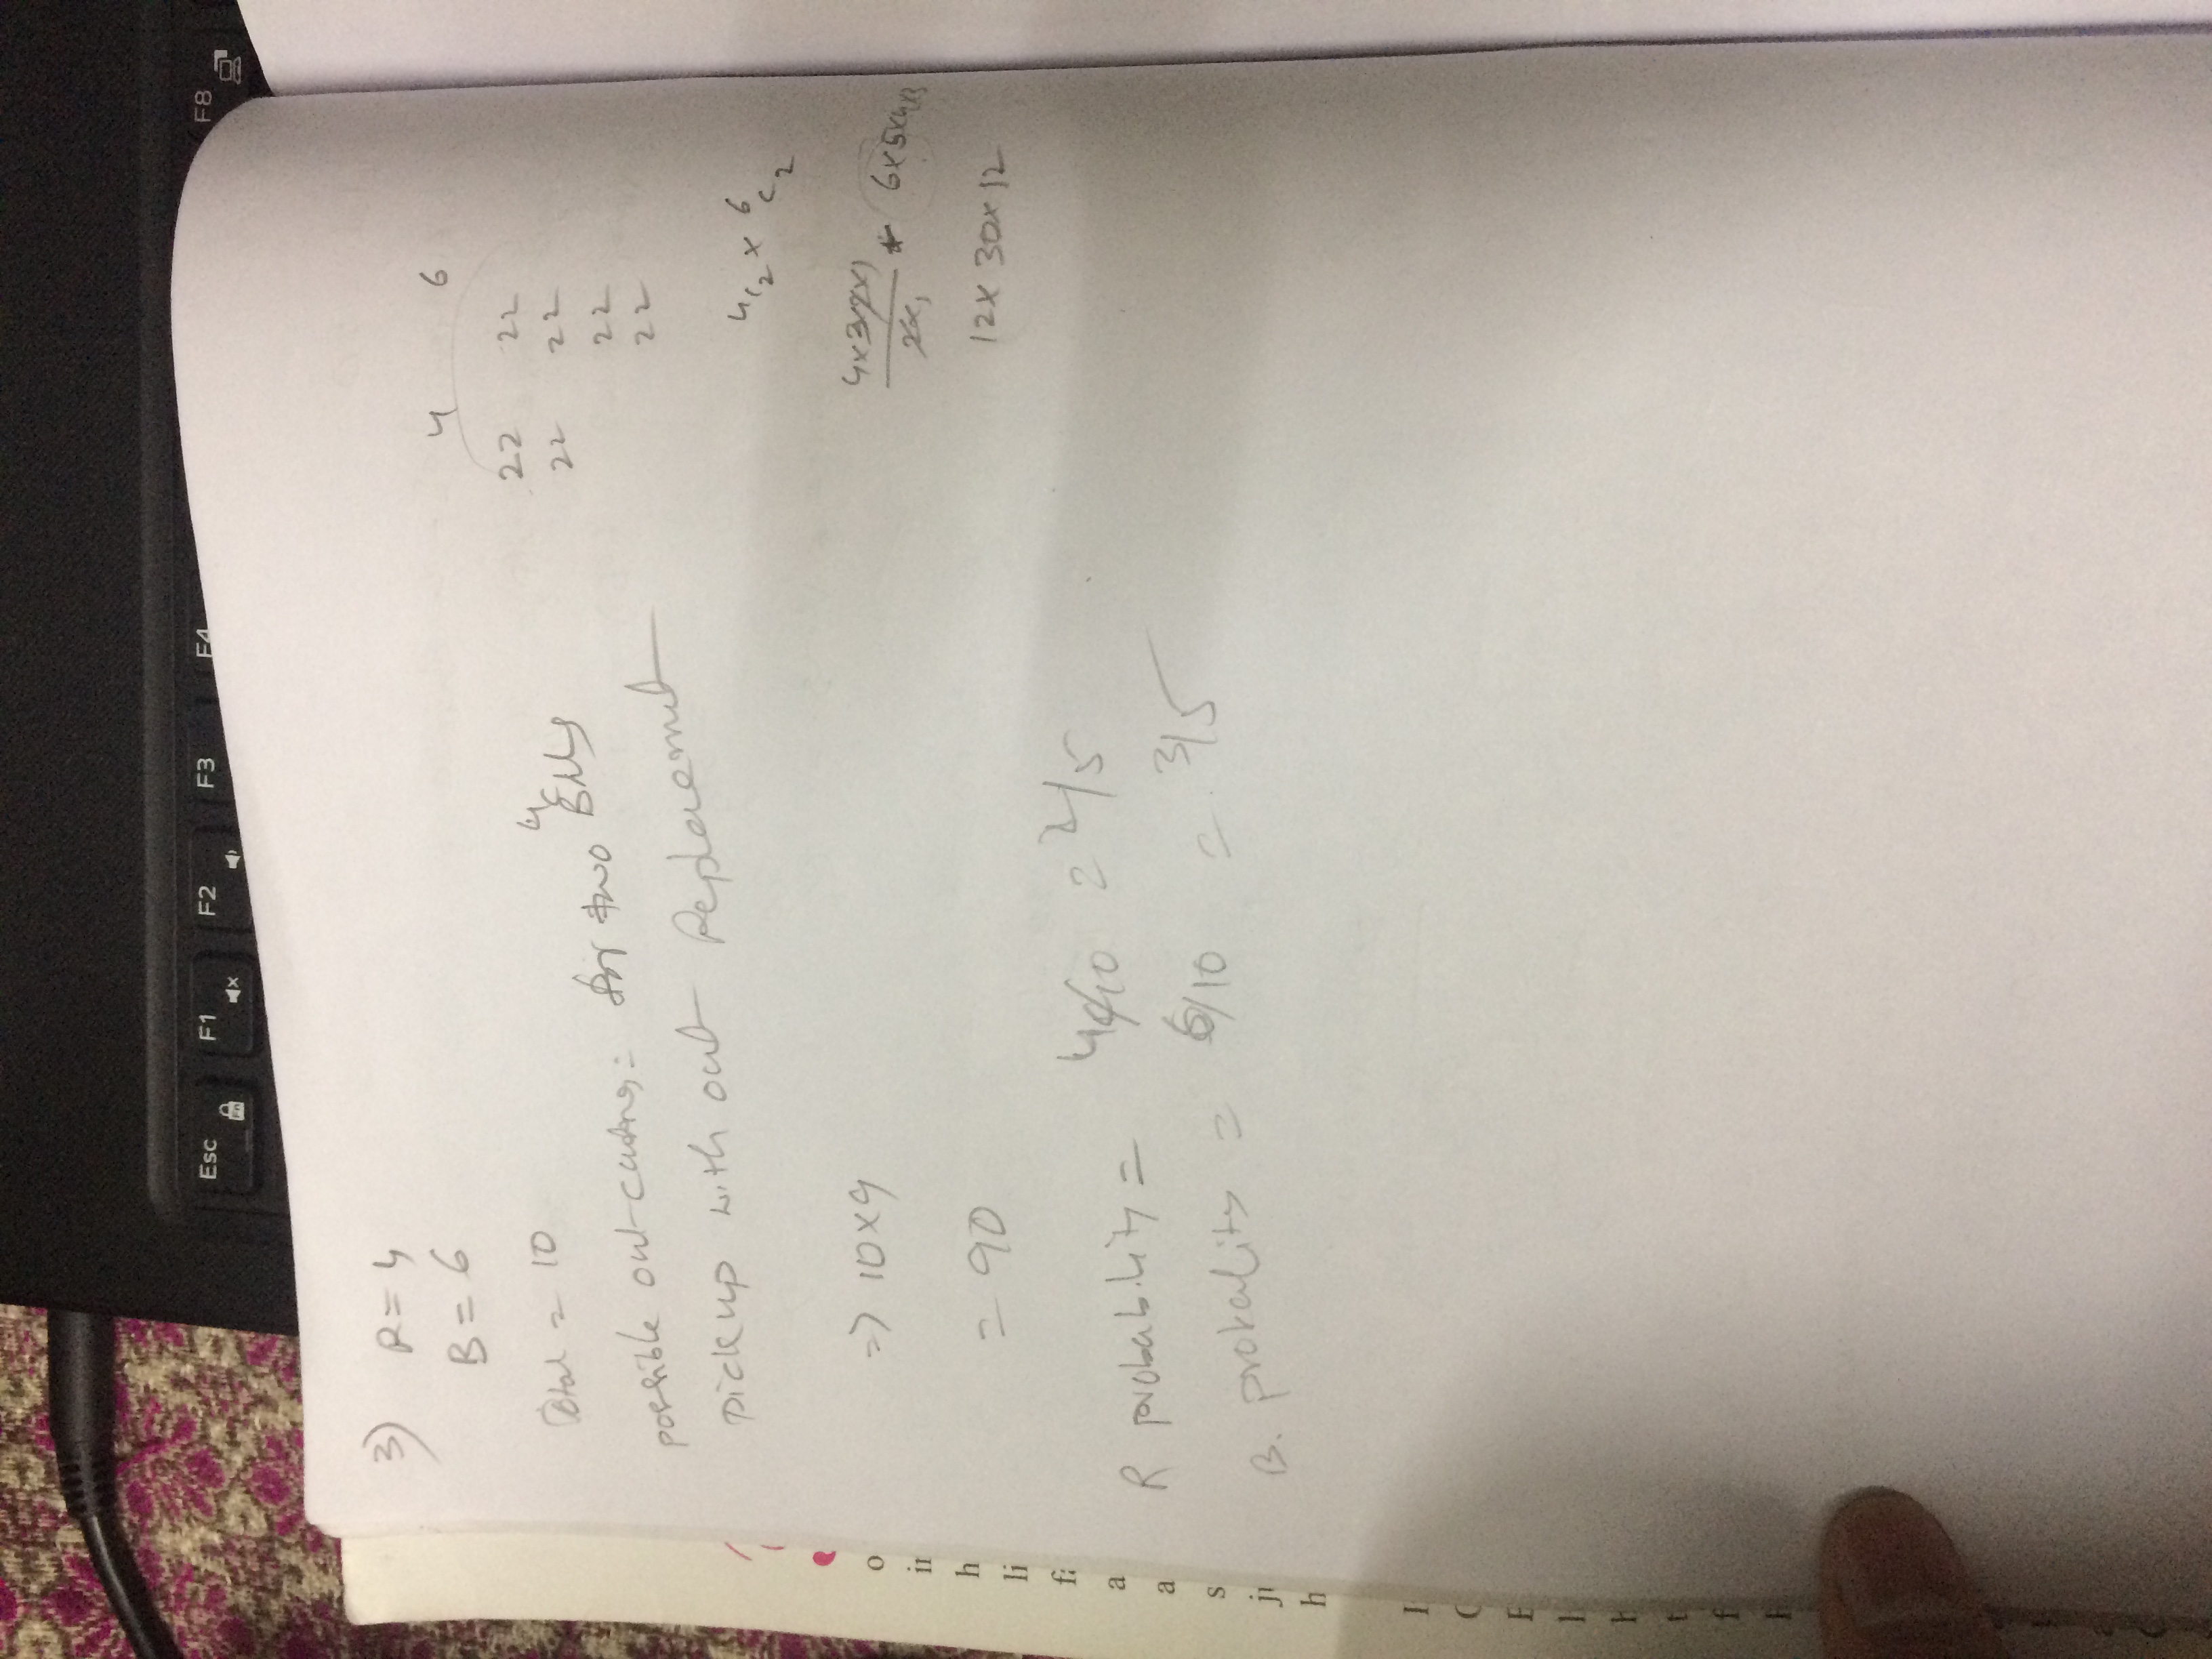 Esc
F1
F2
F3
F4
F8
Fn
3) R = 4
B = 6
Total = 10
possible out-comes: for two Balls
pickup with out Replacement
=> 10x9
= 90
R probability = 4/10 = 2/5
B. probality = 6/10 = 3/5
4 6
22 22
22 22
22
22
4c2 x 6c2
4x3x2x1
2x1
6x5x4x3
12x 30x12
o
in
h
li
fa
a
a
s
ju
h